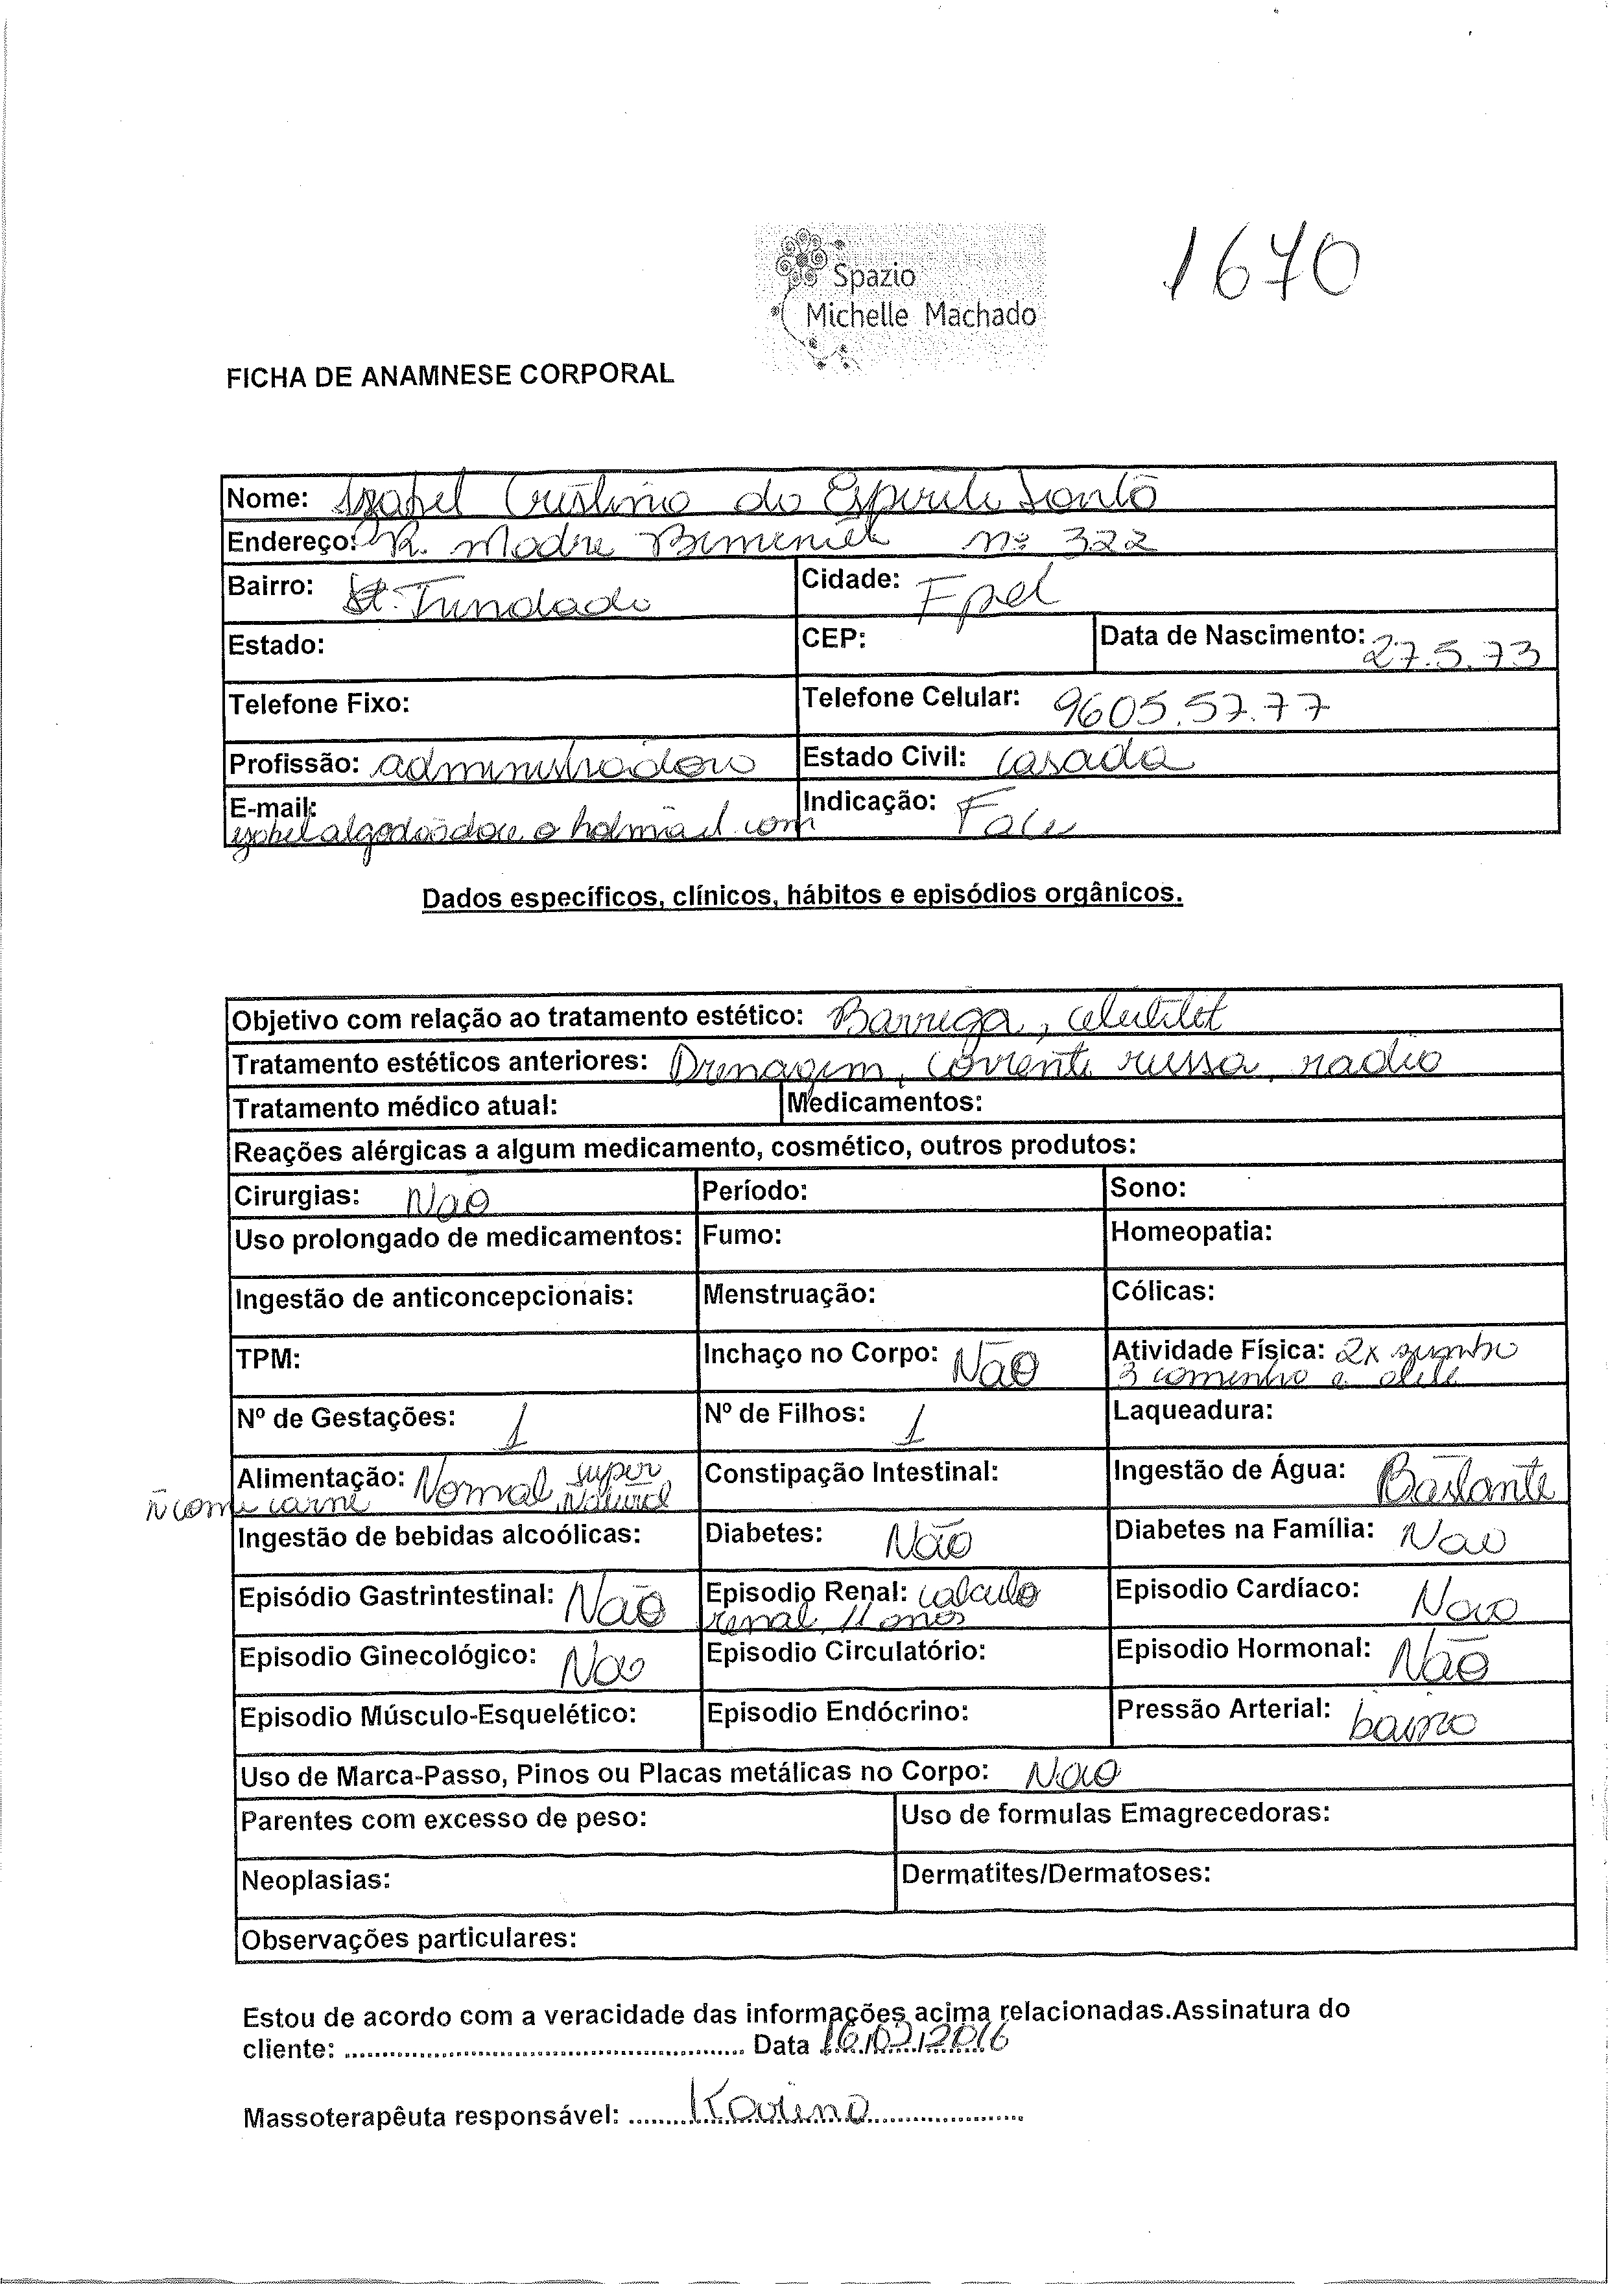 1670
Spazio
Michelle Machado
FICHA DE ANAMNESE CORPORAL
Nome: Izabel Cristina do Espirito Santo
Endereço: R. Madre nº 322
Bairro: St. Trindade Cidade: Fpol
Estado: CEP: Data de Nascimento: 27.5.73
Telefone Fixo: Telefone Celular: 9605.57.77
Profissão: administradora Estado Civil: Casada
E-mail: Indicação: Face
hotmail.com
Dados específicos, clínicos, hábitos e episódios orgânicos.
Objetivo com relação ao tratamento estético: Barriga, celulite
Tratamento estéticos anteriores: Drenagem, corrente russa, radio
Tratamento médico atual: Medicamentos:
Reações alérgicas a algum medicamento, cosmético, outros produtos:
Cirurgias: Não Período: Sono:
Uso prolongado de medicamentos: Fumo: Homeopatia:
Ingestão de anticoncepcionais: Menstruação: Cólicas:
TPM: Inchaço no Corpo: Não Atividade Física: 2x
3
Nº de Gestações: 1 Nº de Filhos: 1 Laqueadura:
Alimentação: Normal, super natural Constipação Intestinal: Ingestão de Água: Bastante
ñ come carne
Ingestão de bebidas alcoólicas: Diabetes: Não Diabetes na Família: Não
Episódio Gastrintestinal: Não Episodio Renal: calculo Episodio Cardíaco: Não
renal, 11 anos
Episodio Ginecológico: Não Episodio Circulatório: Episodio Hormonal: Não
Episodio Músculo-Esquelético: Episodio Endócrino: Pressão Arterial: baixa
Uso de Marca-Passo, Pinos ou Placas metálicas no Corpo: Não
Parentes com excesso de peso: Uso de formulas Emagrecedoras:
Neoplasias: Dermatites/Dermatoses:
Observações particulares:
Estou de acordo com a veracidade das informações acima relacionadas.Assinatura do
cliente: ........ Data 16/02/2016
Massoterapêuta responsável: ........Karina........